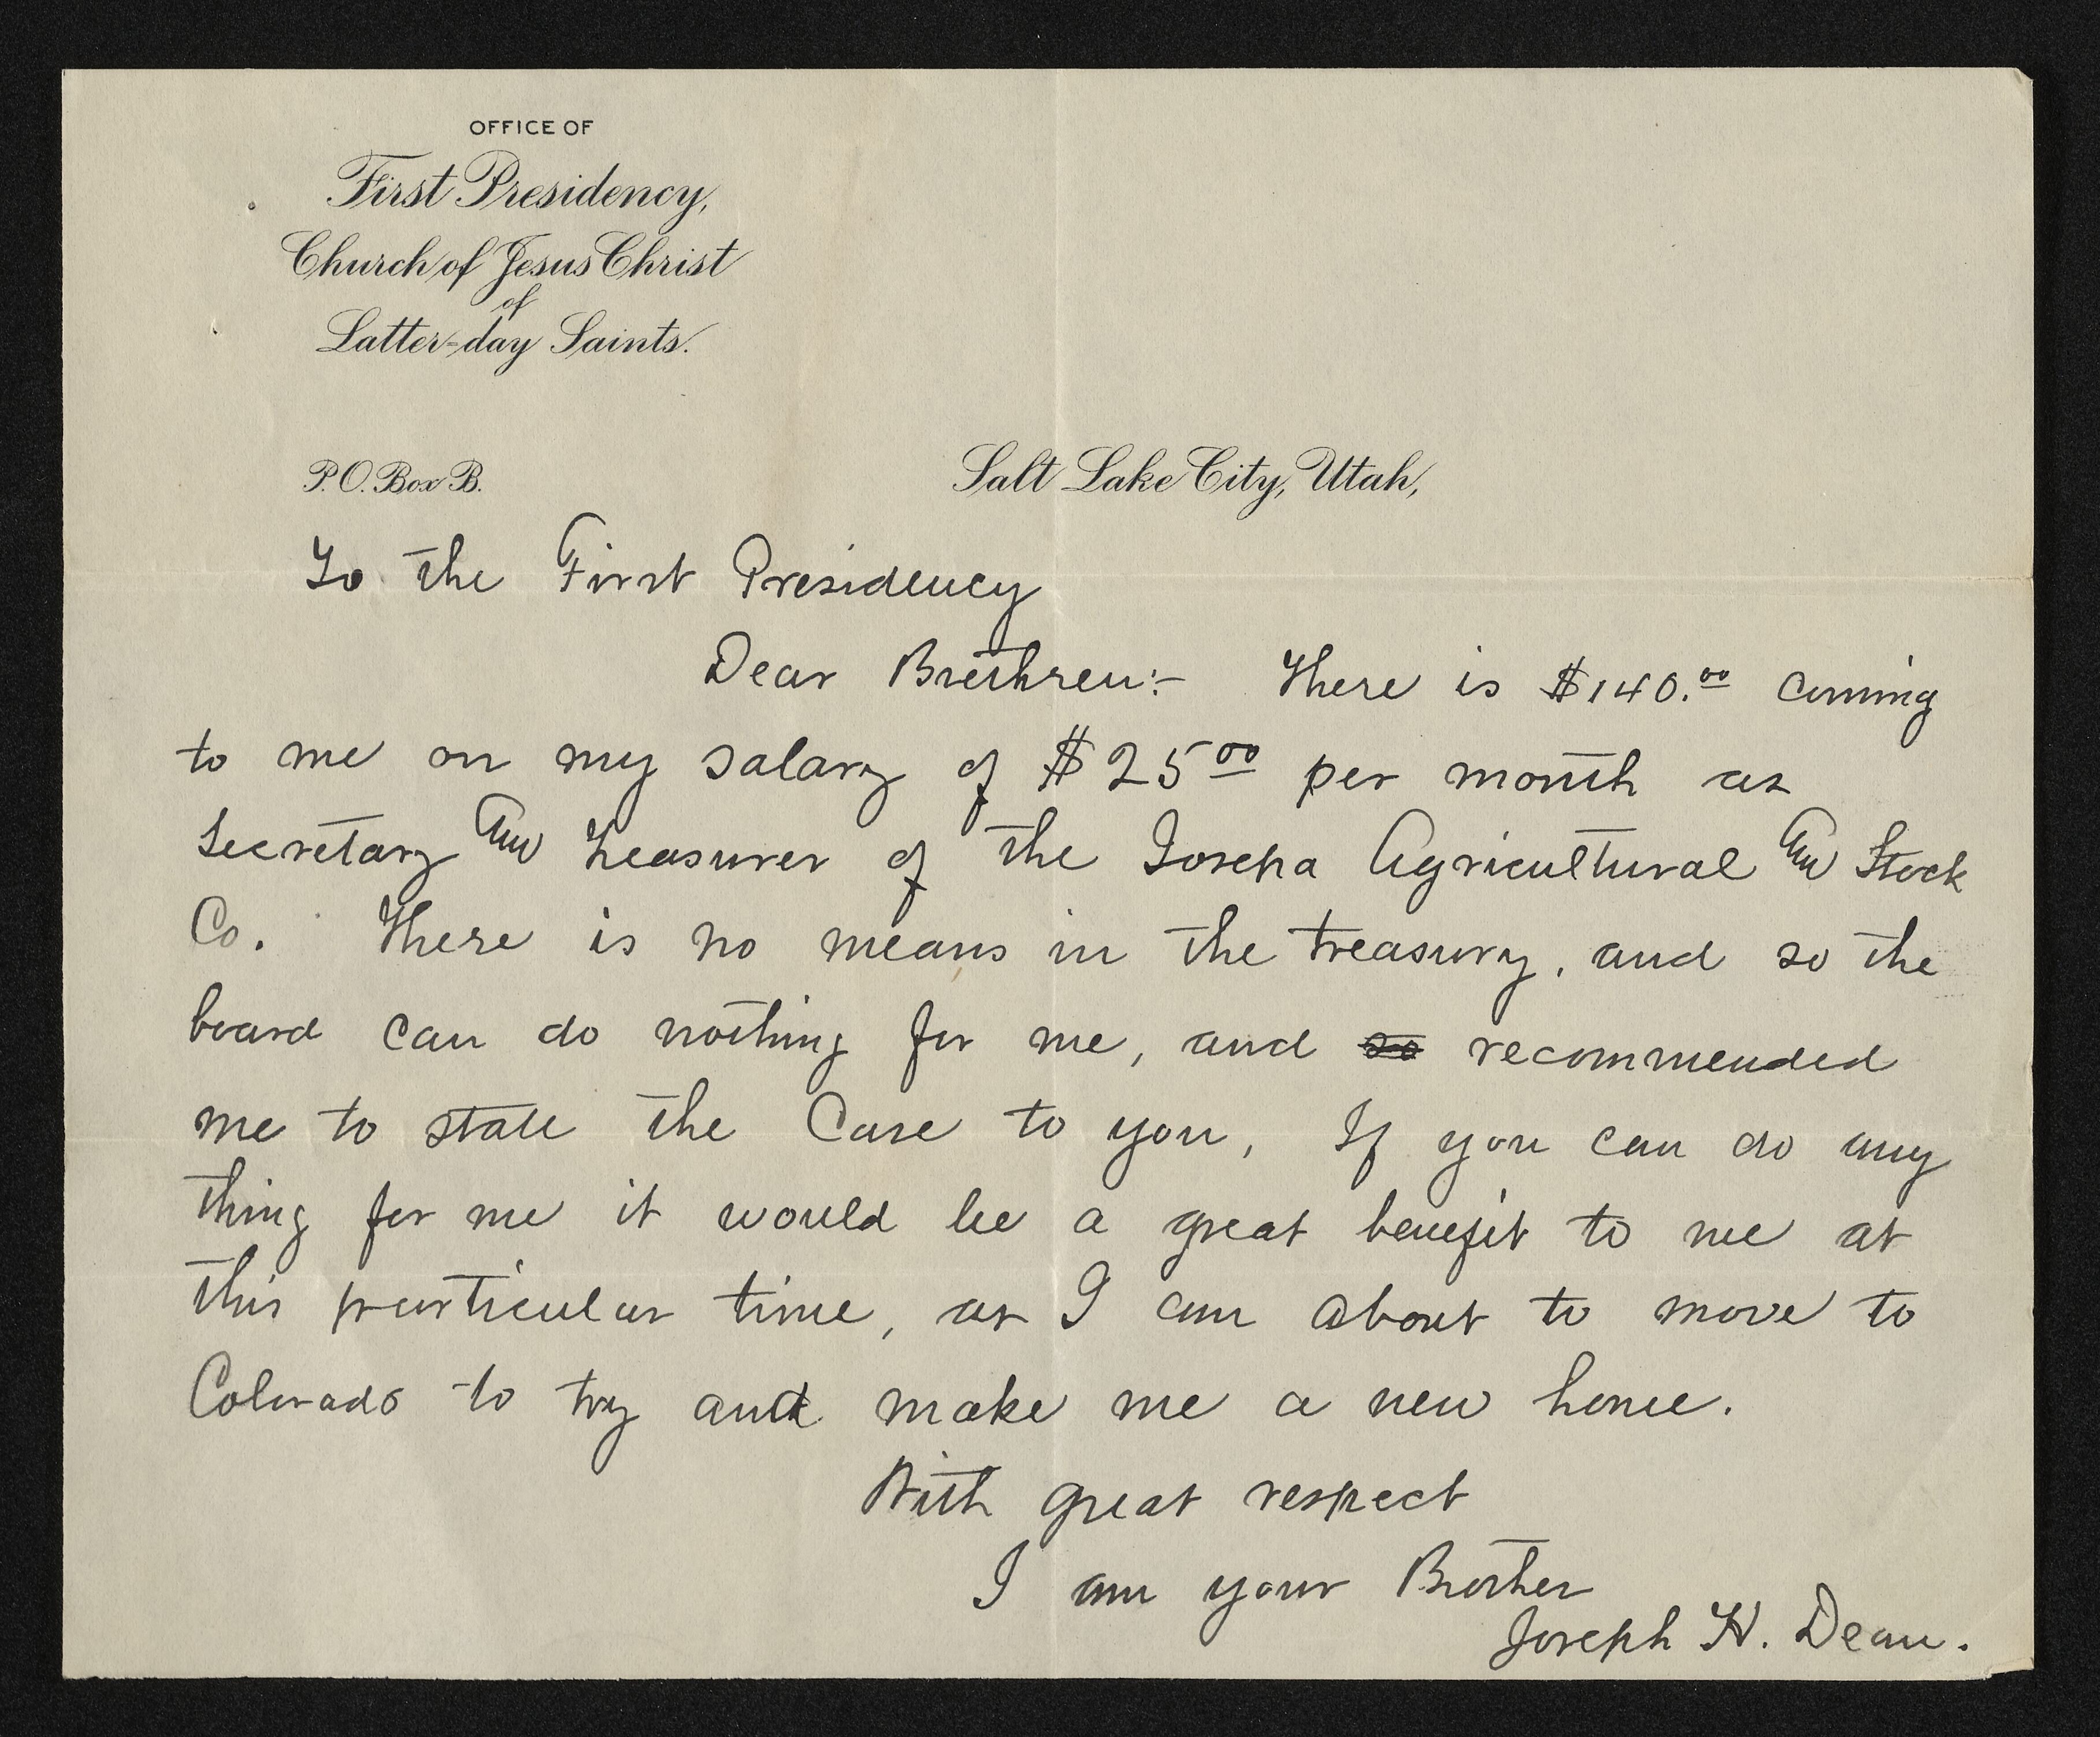 OFFICE OF
First Presidency,
Church of Jesus Christ
of
Latter-day Saints.
P.O. Box B. Salt Lake City, Utah,
To the First Presidency
Dear Brethren:- There is $140.00 coming
to me on my salary of $2500 per month as
Secretary and Treasurer of the Iosepa Agricultural and Stock
Co. There is no means in the treasury, and so the
board can do nothing for me, and so recommended
me to state the case to you, If you can do any
thing for me it would be a great benefit to me at
this particular time, as I am about to move to
Colorado to try and make me a new home.
With great respect
I am your Brother
Joseph H. Dean.